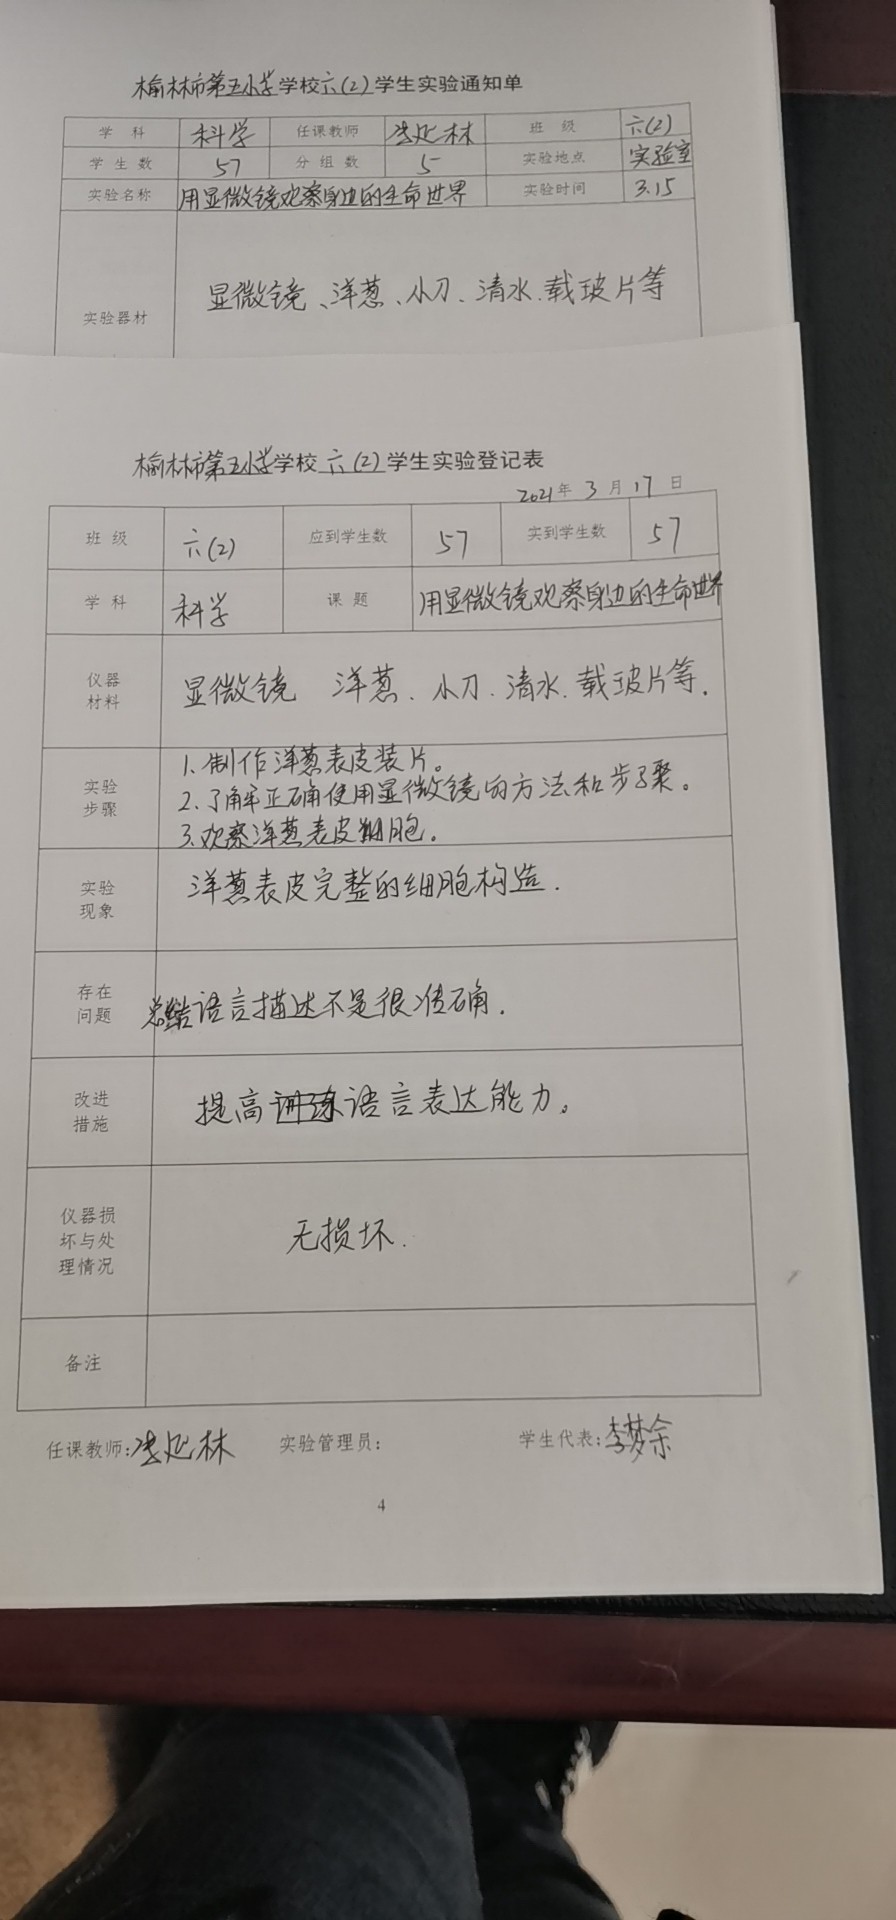 榆林市第五小学学校六(2)学生实验通知单
学科 科学 任课教师 延林 班级 六(2)
学生数 57 分组数 5 实验地点 实验室
实验名称 用显微镜观察身边的生命世界 实验时间 3.15
实验器材 显微镜、洋葱、小刀、清水、载玻片等
榆林市第五小学学校六(2)学生实验登记表
2021年3月17日
班级 六(2) 应到学生数 57 实到学生数 57
学科 科学 课题 用显微镜观察身边的生命世界
仪器
材料
显微镜 洋葱、小刀、清水、载玻片等.
实验
步骤
1.制作洋葱表皮装片。
2.了解正确使用显微镜的方法和步骤。
3.观察洋葱表皮细胞.
实验
现象
洋葱表皮完整的细胞构造.
存在
问题
总结语言描述不是很准确.
改进
措施
提高训练语言表达能力。
仪器损
坏与处
理情况
无损坏.
备注
任课教师:延林 实验管理员: 学生代表:李梦余
4